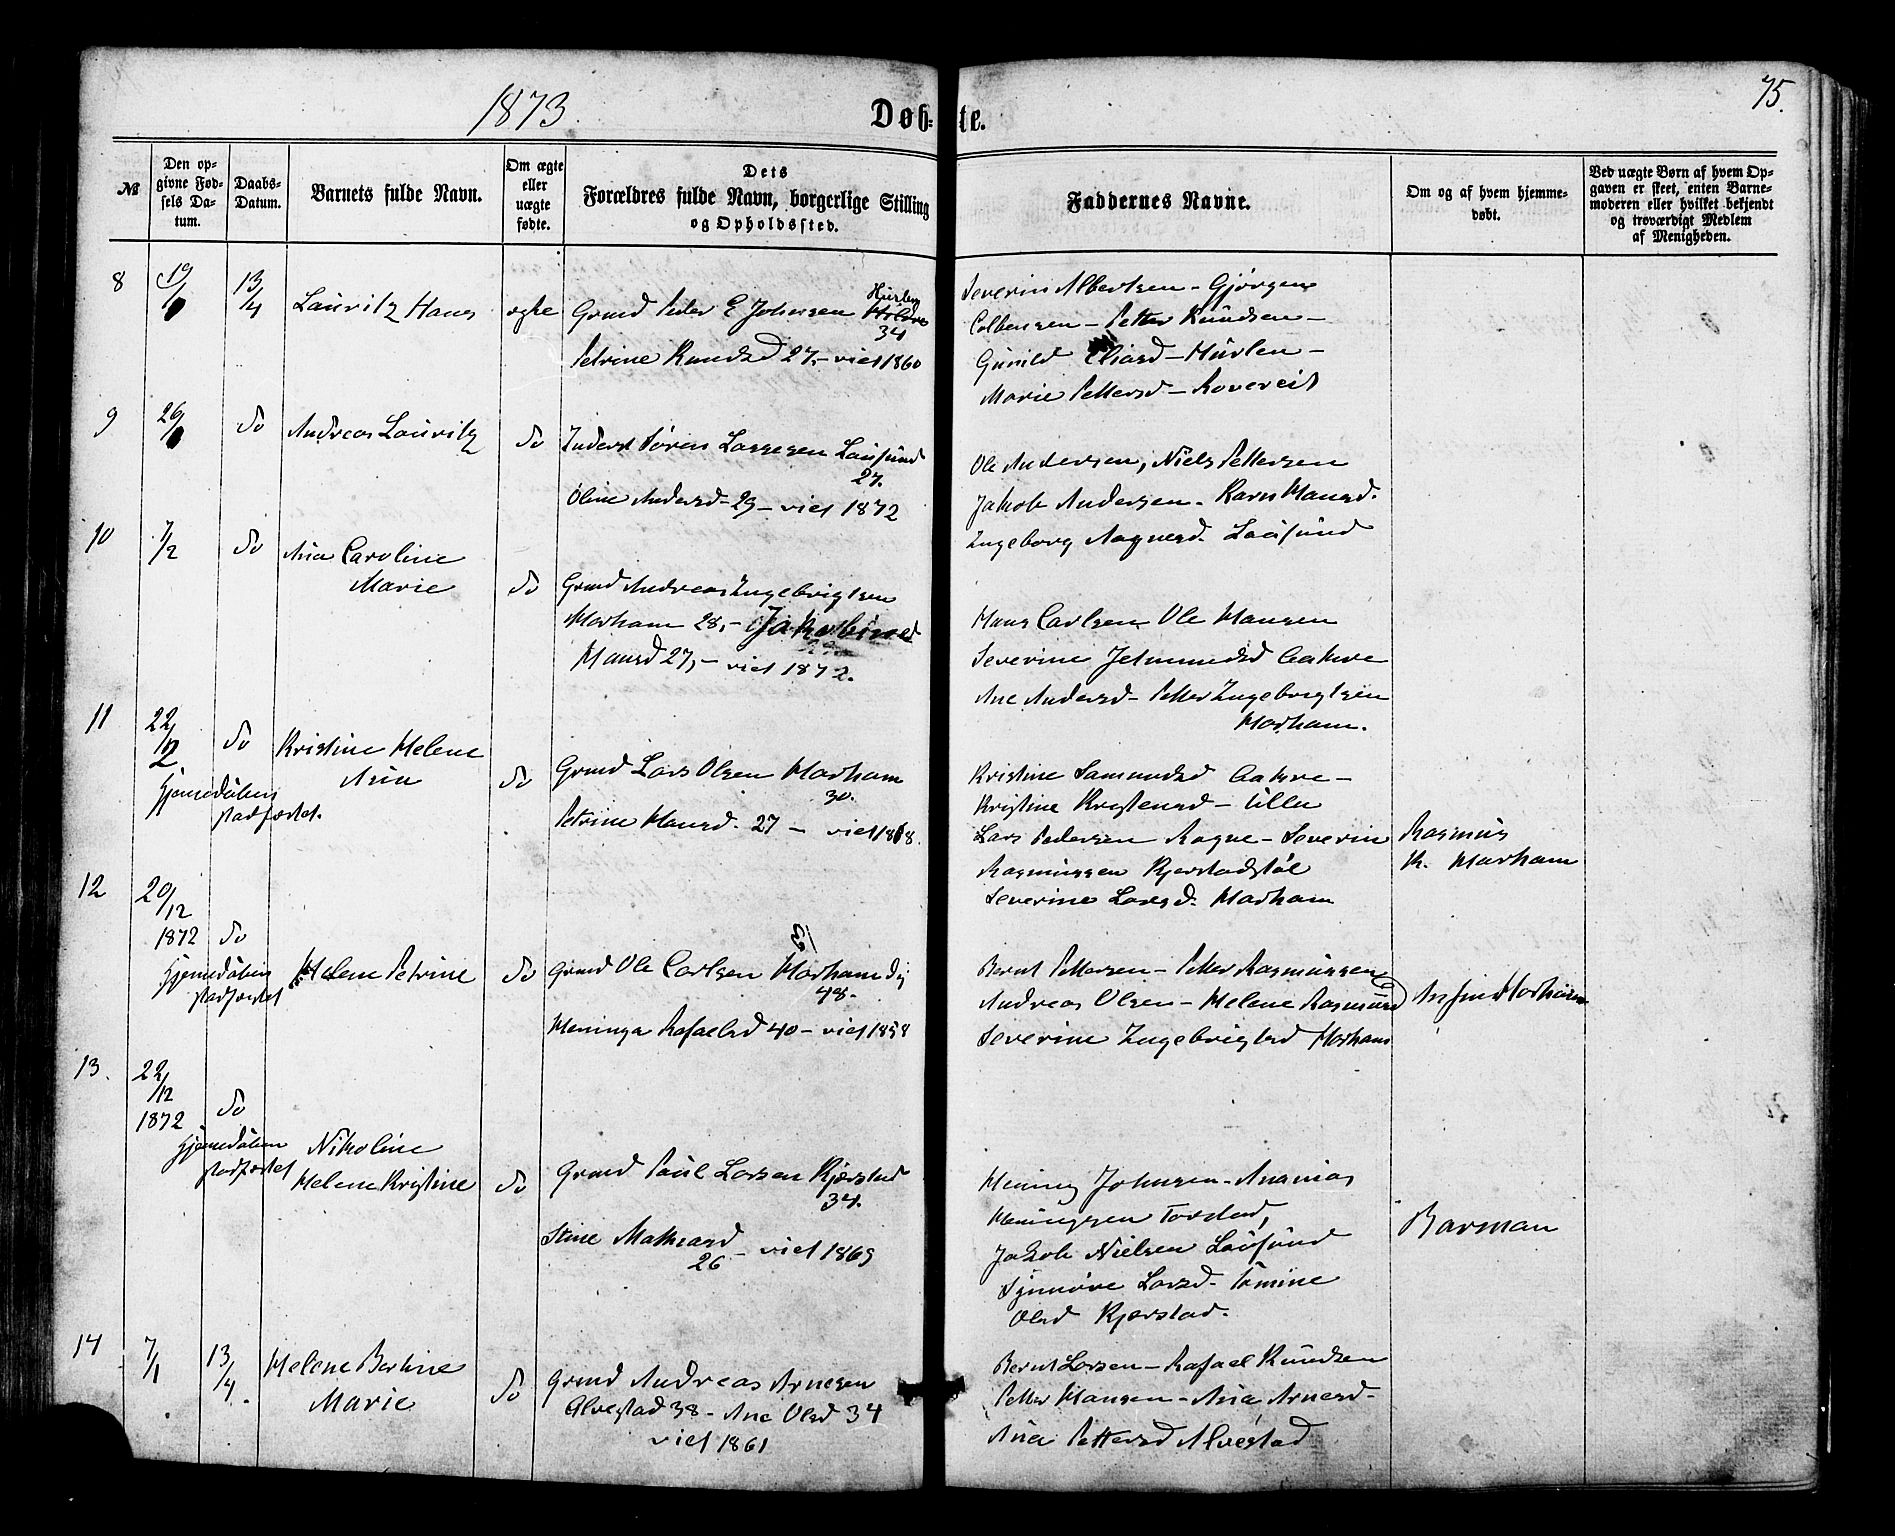 1873.
Døb-
te.
75.
No
Den op-
givne Fød-
sels Da-
tum.
Daabs-
Datum.
Barnets fulde Navn.
Om ægte
eller
uægte
fødte.
Dets
Forældres fulde Navn, borgerlige Stilling
og Opholdssted.
Faddernes Navne.
Om og af hvem hjemme-
døbt.
Ved uægte Børn af hvem Op-
gaven er skeet, enten Barne-
moderen eller hvilket bekjendt
og troværdigt Medlem
af Menigheden.
8
19/
13/4
Lauritz Hans
ægte
Grmd Peder E Johnsen
34
Petrine Knudsd 27,- viet 1860
Severin Albertsen - Gjørgen
Colbensen - Petter Knudsen -
Gunild Eliasd - Hurlen -
Marie Pettersd - Rovereit
9
26/
do
Andreas Lauritz
do
Inderst Søren Lassesen Lausund
27.
Oline Andersd - 29 - viet 1872
Ole Andersen, Niels Pettersen
Jakob Andersen - Karn Hansd.
Ingeborg Aagesd. Lausund
10
7/2
do
Ana Caroline
Marie
do
Grmd Andreas Ingebrigtsen
Harham 28,- Jakobine
Hansd 27,- viet 1872.
Hans Carlsen Ole Hansen
Severine Jetmundsd Aakre
Ane Andersd - Petter Ingebrigtsen
Harham.
11
22/2
do
Kristine Helene
Ana
Hjemedøbt
stadfæstet.
do
Grmd Lars Olsen Harham
30.
Petrine Hansd. 27 - viet 1868.
Kristine Samundsd Aakre -
Kristine Kristensd - Ulla
Lars Pedersen Rogne - Severin
Rasmussen Kjerstadstøl
Severine Larsd. Harham
Rasmus
K. Harham
12
20/12
1872
do
Hjemedøbt
stadfæstet
Helene Petrine
do
Grmd Ole Carlsen Harham
48.
Heninga Rafaelsd 40 - viet 1858
Bernt Pettersen - Petter Rasmussen
Andreas Olsen - Helene Rasmusd
Severine Ingebrigtsd Harham
Harham
13.
22/12
1872
do
Hjemedøbt
stadfæstet
Nikoline
Helene Kristine
do
Grmd Paul Larsen Kjærstad
34.
Stine Mathiasd
26 - viet 1869
Hening Johnsen - Ananias
Heningsen Torstad,
Jakob Nielsen Lausund
Synnøve Larsd. Tomine
Olsd Kjærstad.
Barman
14
7/1
13/4
Helene Bertine
Marie
do
Grmd Andreas Arnesen
Alvestad 38 - Ane Olsd 34
viet 1861
Bernt Larsen - Rafael Knudsen
Petter Hansen - Ana Arnesd -
Ana Pettersd Alvestad